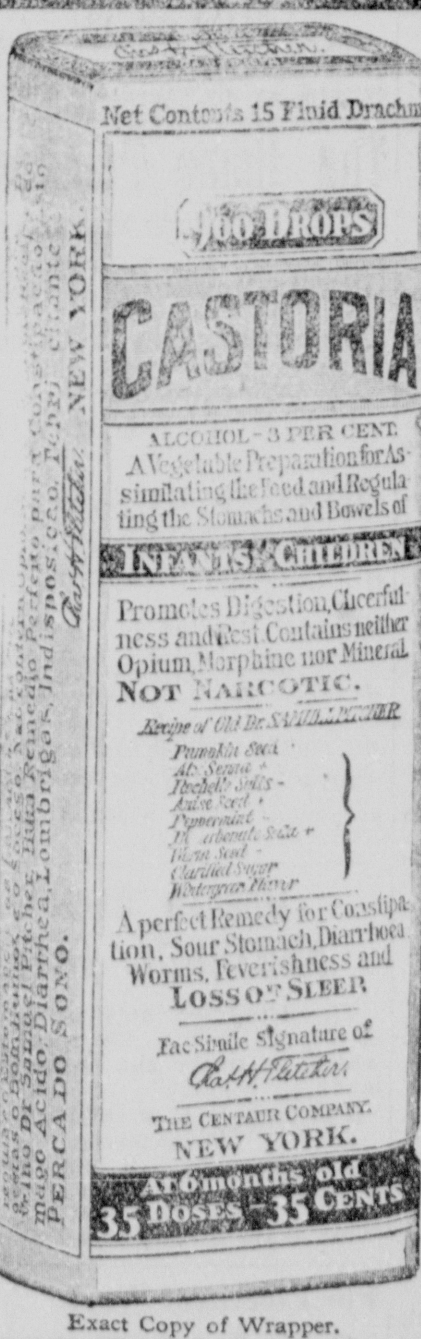 Chas H. Fletcher.
Net Contents 15 Fluid Drachm
900 DROPS
CASTORIA
ALCOHOL-3 PER CENT.
A Vegetable Preparation for As-
similating the Food and Regula-
ting the Stomachs and Bowels of
INFANTS & CHILDREN
Promotes Digestion, Cheerful-
ness and Rest. Contains neither
Opium, Morphine nor Mineral.
NOT NARCOTIC.
Recipe of Old Dr. SAMUEL PITCHER
Pumpkin Seed -
Alx Senna +
Rochelle Salts -
Anise Seed +
Peppermint -
Bicarbonate Soda +
Worm Seed -
Clarified Sugar
Wintergreen Flavor
A perfect Remedy for Constipa-
tion, Sour Stomach, Diarrhoea
Worms, Feverishness and
LOSS OF SLEEP.
Fac Simile Signature of
Chas H. Fletcher.
THE CENTAUR COMPANY.
NEW YORK.
At 6 months old
35 DOSES - 35 CENTS
Dr Samuel Pitcher. Remedio Perfeito para Constipação
mago Acido, Diarrhea, Lombrigas, Indisposição,
PERCA DO SONO.
Chas H. Fletcher. NEW YORK.
Exact Copy of Wrapper.